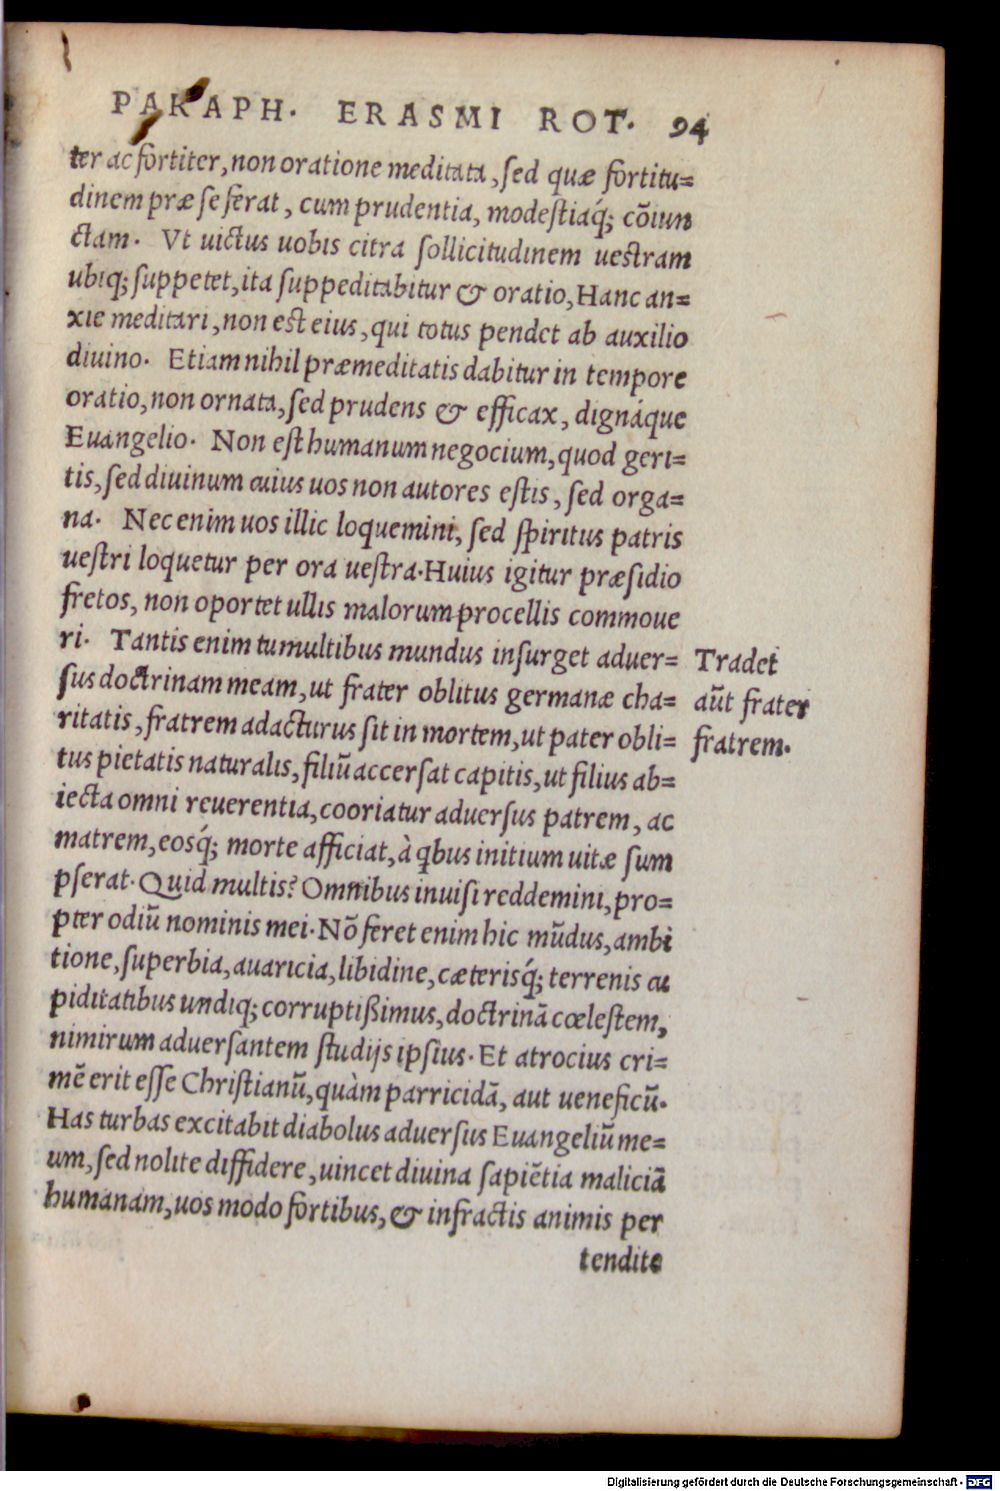 PARAPH. ERASMI ROT. 94
ter ac fortiter, non oratione meditata, ſed quæ fortitu=
dinem præ ſe ferat, cum prudentia, modeſtiaq́; cōiun
ctam. Vt uictus uobis citra ſollicitudinem ueſtram
ubiq; ſuppetet, ita ſuppeditabitur & oratio, Hanc an=
xie meditari, non eſt eius, qui totus pendet ab auxilio
diuino. Etiam nihil præmeditatis dabitur in tempore
oratio, non ornata, ſed prudens & efficax, dignáque
Euangelio. Non eſt humanum negocium, quod geri=
tis, ſed diuinum cuius uos non autores eſtis, ſed orga=
na. Nec enim uos illic loquemini, ſed ſpiritus patris
ueſtri loquetur per ora ueſtra. Huius igitur præſidio
fretos, non oportet ullis malorum procellis commoue
ri. Tantis enim tumultibus mundus inſurget aduer=
ſus doctrinam meam, ut frater oblitus germanæ cha=
ritatis, fratrem adacturus ſit in mortem, ut pater obli=
tus pietatis naturalis, filiū accerſat capitis, ut filius ab=
iecta omni reuerentia, cooriatur aduerſus patrem, ac
matrem, eosq́; morte afficiat, à qbus initium uitæ ſum
pſerat. Quid multis? Omnibus inuiſi reddemini, pro=
pter odiū nominis mei. Nō feret enim hic mūdus, ambi
tione, ſuperbia, auaricia, libidine, cæterisq́; terrenis cu
piditatibus undiq; corruptißimus, doctrinā cœleſtem,
nimirum aduerſantem ſtudijs ipſius. Et atrocius cri=
mē erit eſſe Chriſtianū, quàm parricidā, aut ueneficū.
Has turbas excitabit diabolus aduerſus Euangeliū me=
um, ſed nolite diffidere, uincet diuina ſapiētia maliciā
humanam, uos modo fortibus, & infractis animis per
tendite
Tradet
aūt frater
fratrem.
Digitalisierung gefördert durch die Deutsche Forschungsgemeinschaft - DFG